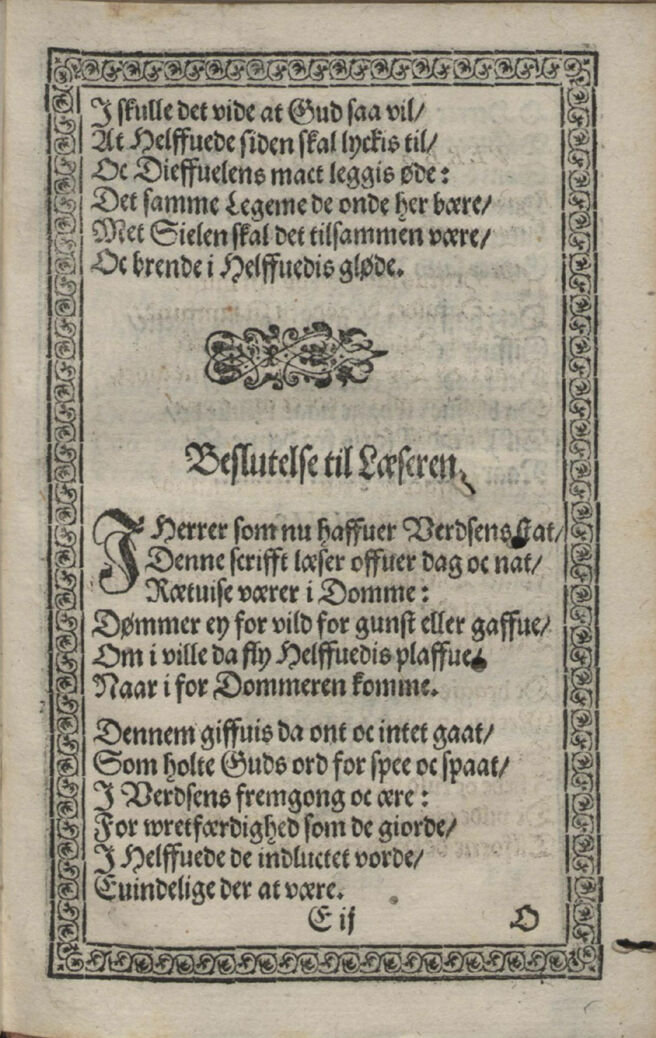 I skulle det vide at Gud saa vil/
At Helffuede siden skal lyckis til/
Oc Dieffuelens mact leggis øde:
Det samme Legeme de onde her bære/
Met Sielen skal det tilsammen være/
Oc brende i Helffuedis gløde.
Beslutelse til Læseren.
I Herrer som nu haffuer Verdsens skat/
Denne scrifft læser offuer dag oc nat/
Rætuise værer i Domme:
Dømmer ey for vild for gunst eller gaffue/
Om i ville da fly Helffuedis plaffue/
Naar i for Dommeren komme.
Dennem giffuis da ont oc intet gaat/
Som holte Guds ord for spee oc spaat/
I Verdsens fremgong oc ære:
For wretfærdighed som de giorde/
I Helffuede de indluctet vorde/
Euindelige der at være.
E ij O